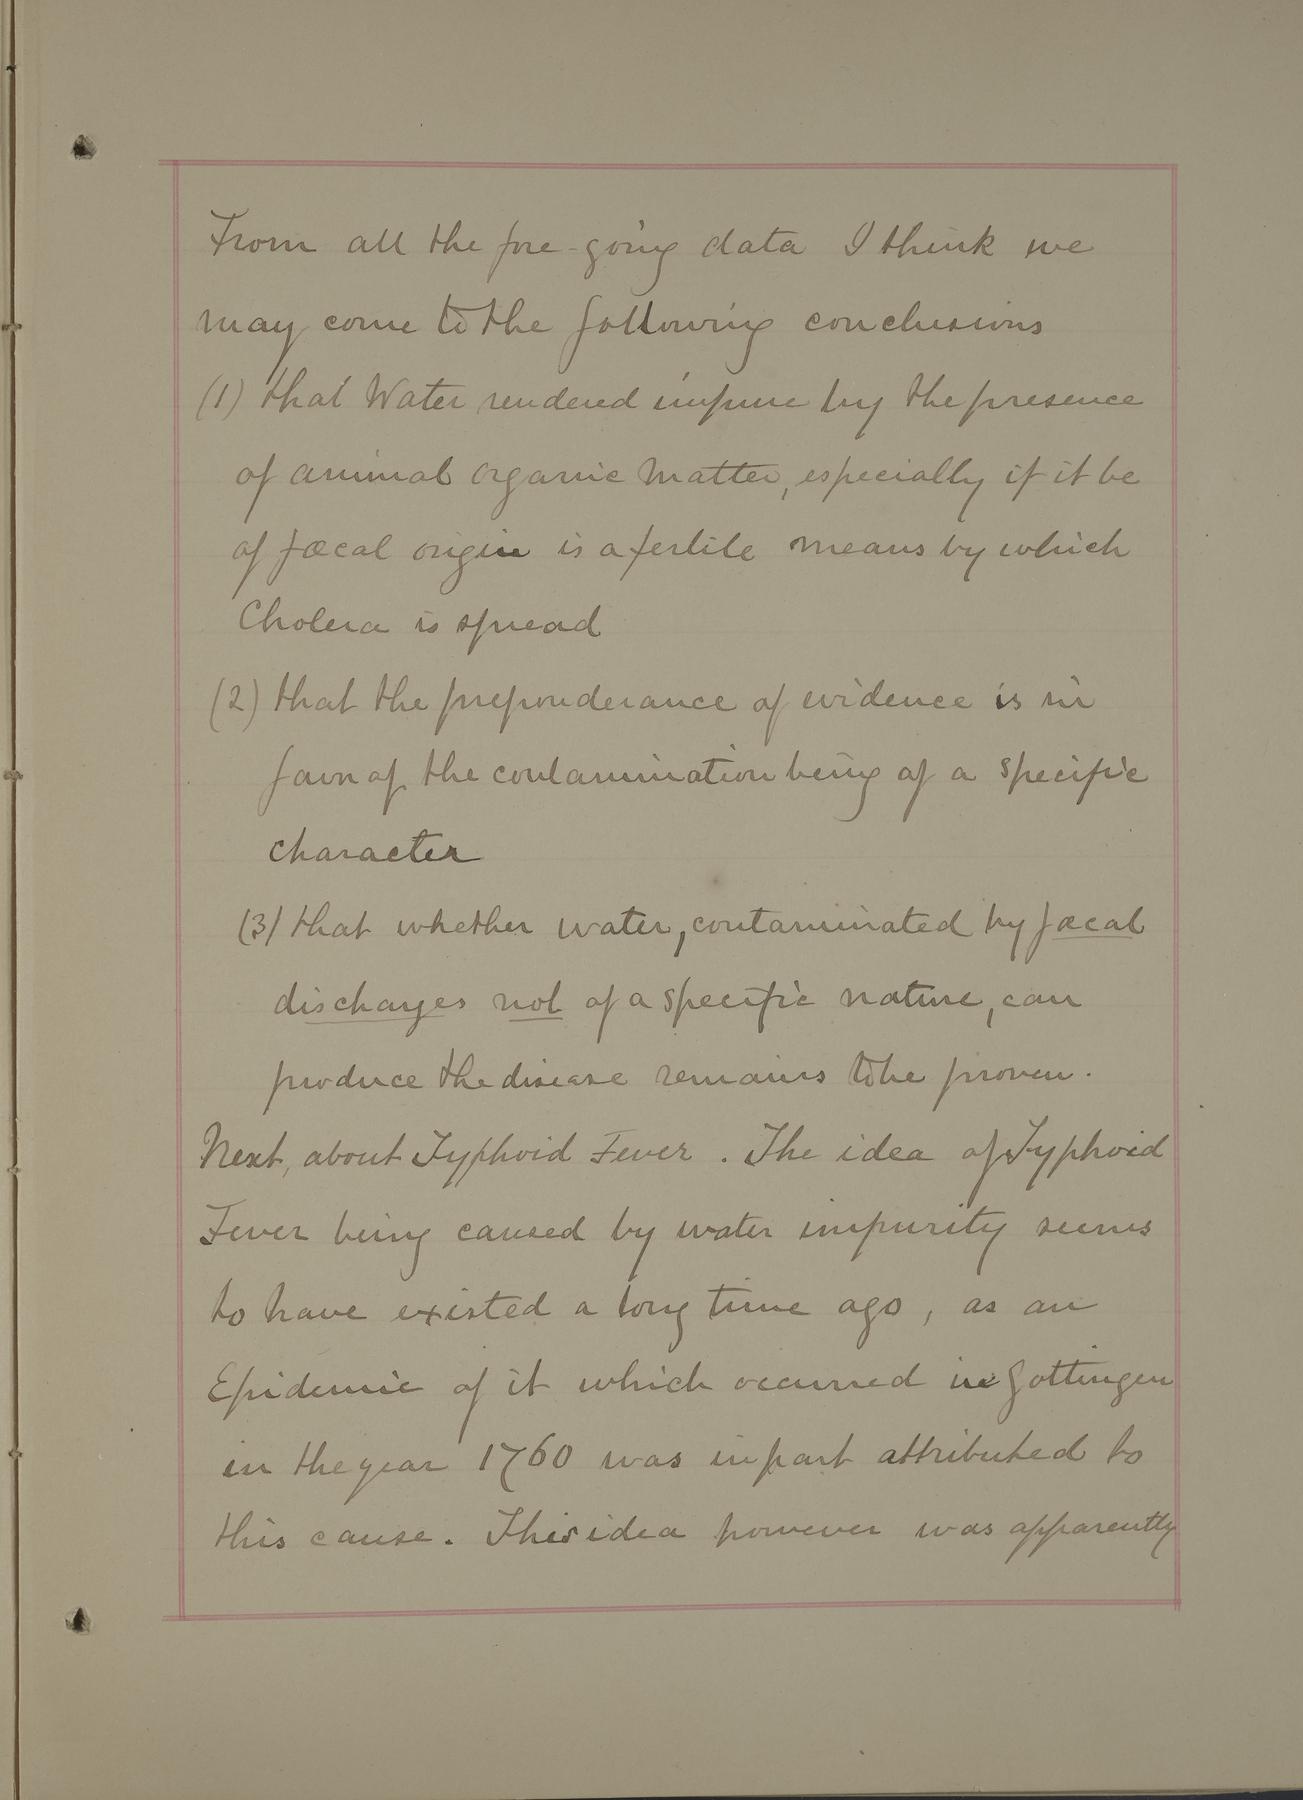 From all the fore-going data I think we
may come to the following conclusions
(1) that Water rendered impure by the presence
of animal organic matter, especially if it be
of fæcal origin is a fertile means by which
Cholera is spread
(2) that the preponderance of evidence is in
favor of the contamination being of a specific
character
(3) that whether water, contaminated by fæcal
discharges not of a specific nature, can
produce the disease remains to be proven.
Next, about Typhoid Fever. The idea of Typhoid
Fever being caused by water impurity seems
to have existed a long time ago, as an
Epidemic of it which occurred in Gottingen
in the year 1760 was in part attributed to
this cause. This idea however was apparently